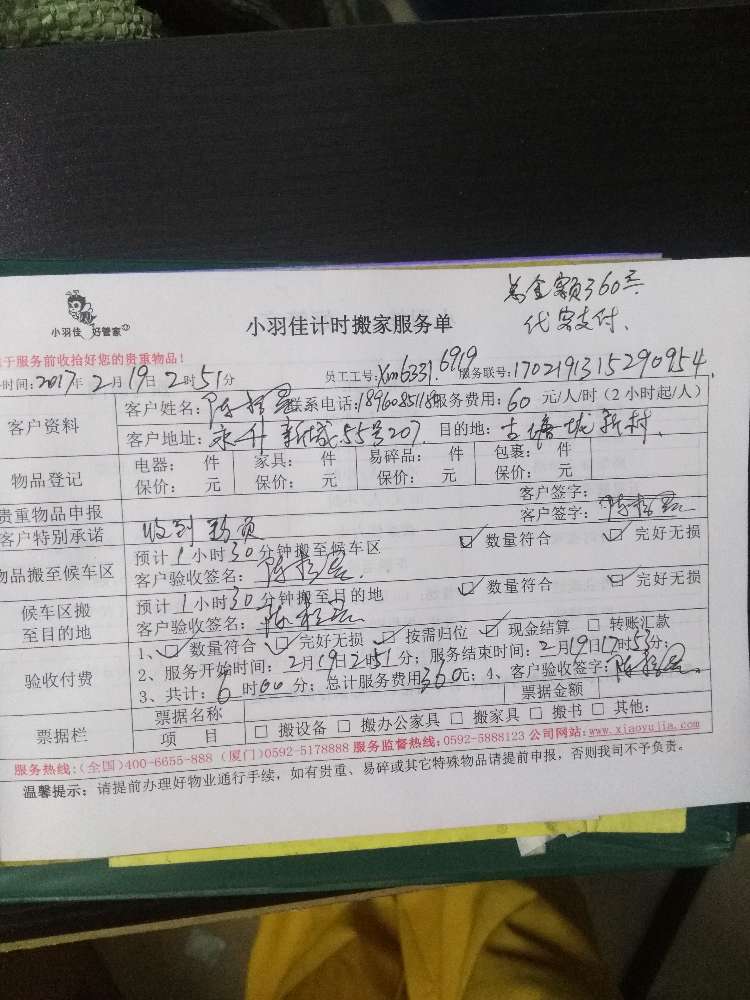 总金额360元
代客支付、
小羽佳 好管家
小羽佳计时搬家服务单
于服务前收拾好您的贵重物品！
时间：2017年2月19日2时51分 员工工号：Xm6331.6919 服务联号：1702191315290954
客户资料 客户姓名： 联系电话：18960851185 服务费用：60 元/人/时（2小时起/人）
客户地址：永升新城55号207. 目的地：古塘垅新村.
物品登记 电器： 件 家具： 件 易碎品： 件 包裹： 件
保价： 元 保价： 元 保价： 元 保价： 元
贵重物品申报 客户签字：
客户特别承诺 收到 客户签字：
物品搬至候车区 预计1小时30分钟搬至候车区 数量符合 完好无损
客户验收签名：
候车区搬至目的地 预计1小时30分钟搬至目的地 数量符合 完好无损
客户验收签名：
验收付费 1、数量符合 完好无损 按需归位 现金结算 转账汇款
2、服务开始时间：2月19日2时51分；服务结束时间：2月19日17时53分；
3、共计：6时00分；总计服务费用360元；4、客户验收签字：
票据栏 票据名称 票据金额
项 目 搬设备 搬办公家具 搬家具 搬书 其他：
服务热线：（全国）400-6655-888（厦门）0592-5178888 服务监督热线：0592-5888123 公司网站：www.xiaoyujia.com
温馨提示：请提前办理好物业通行手续，如有贵重、易碎或其它特殊物品请提前申报，否则我司不予负责。